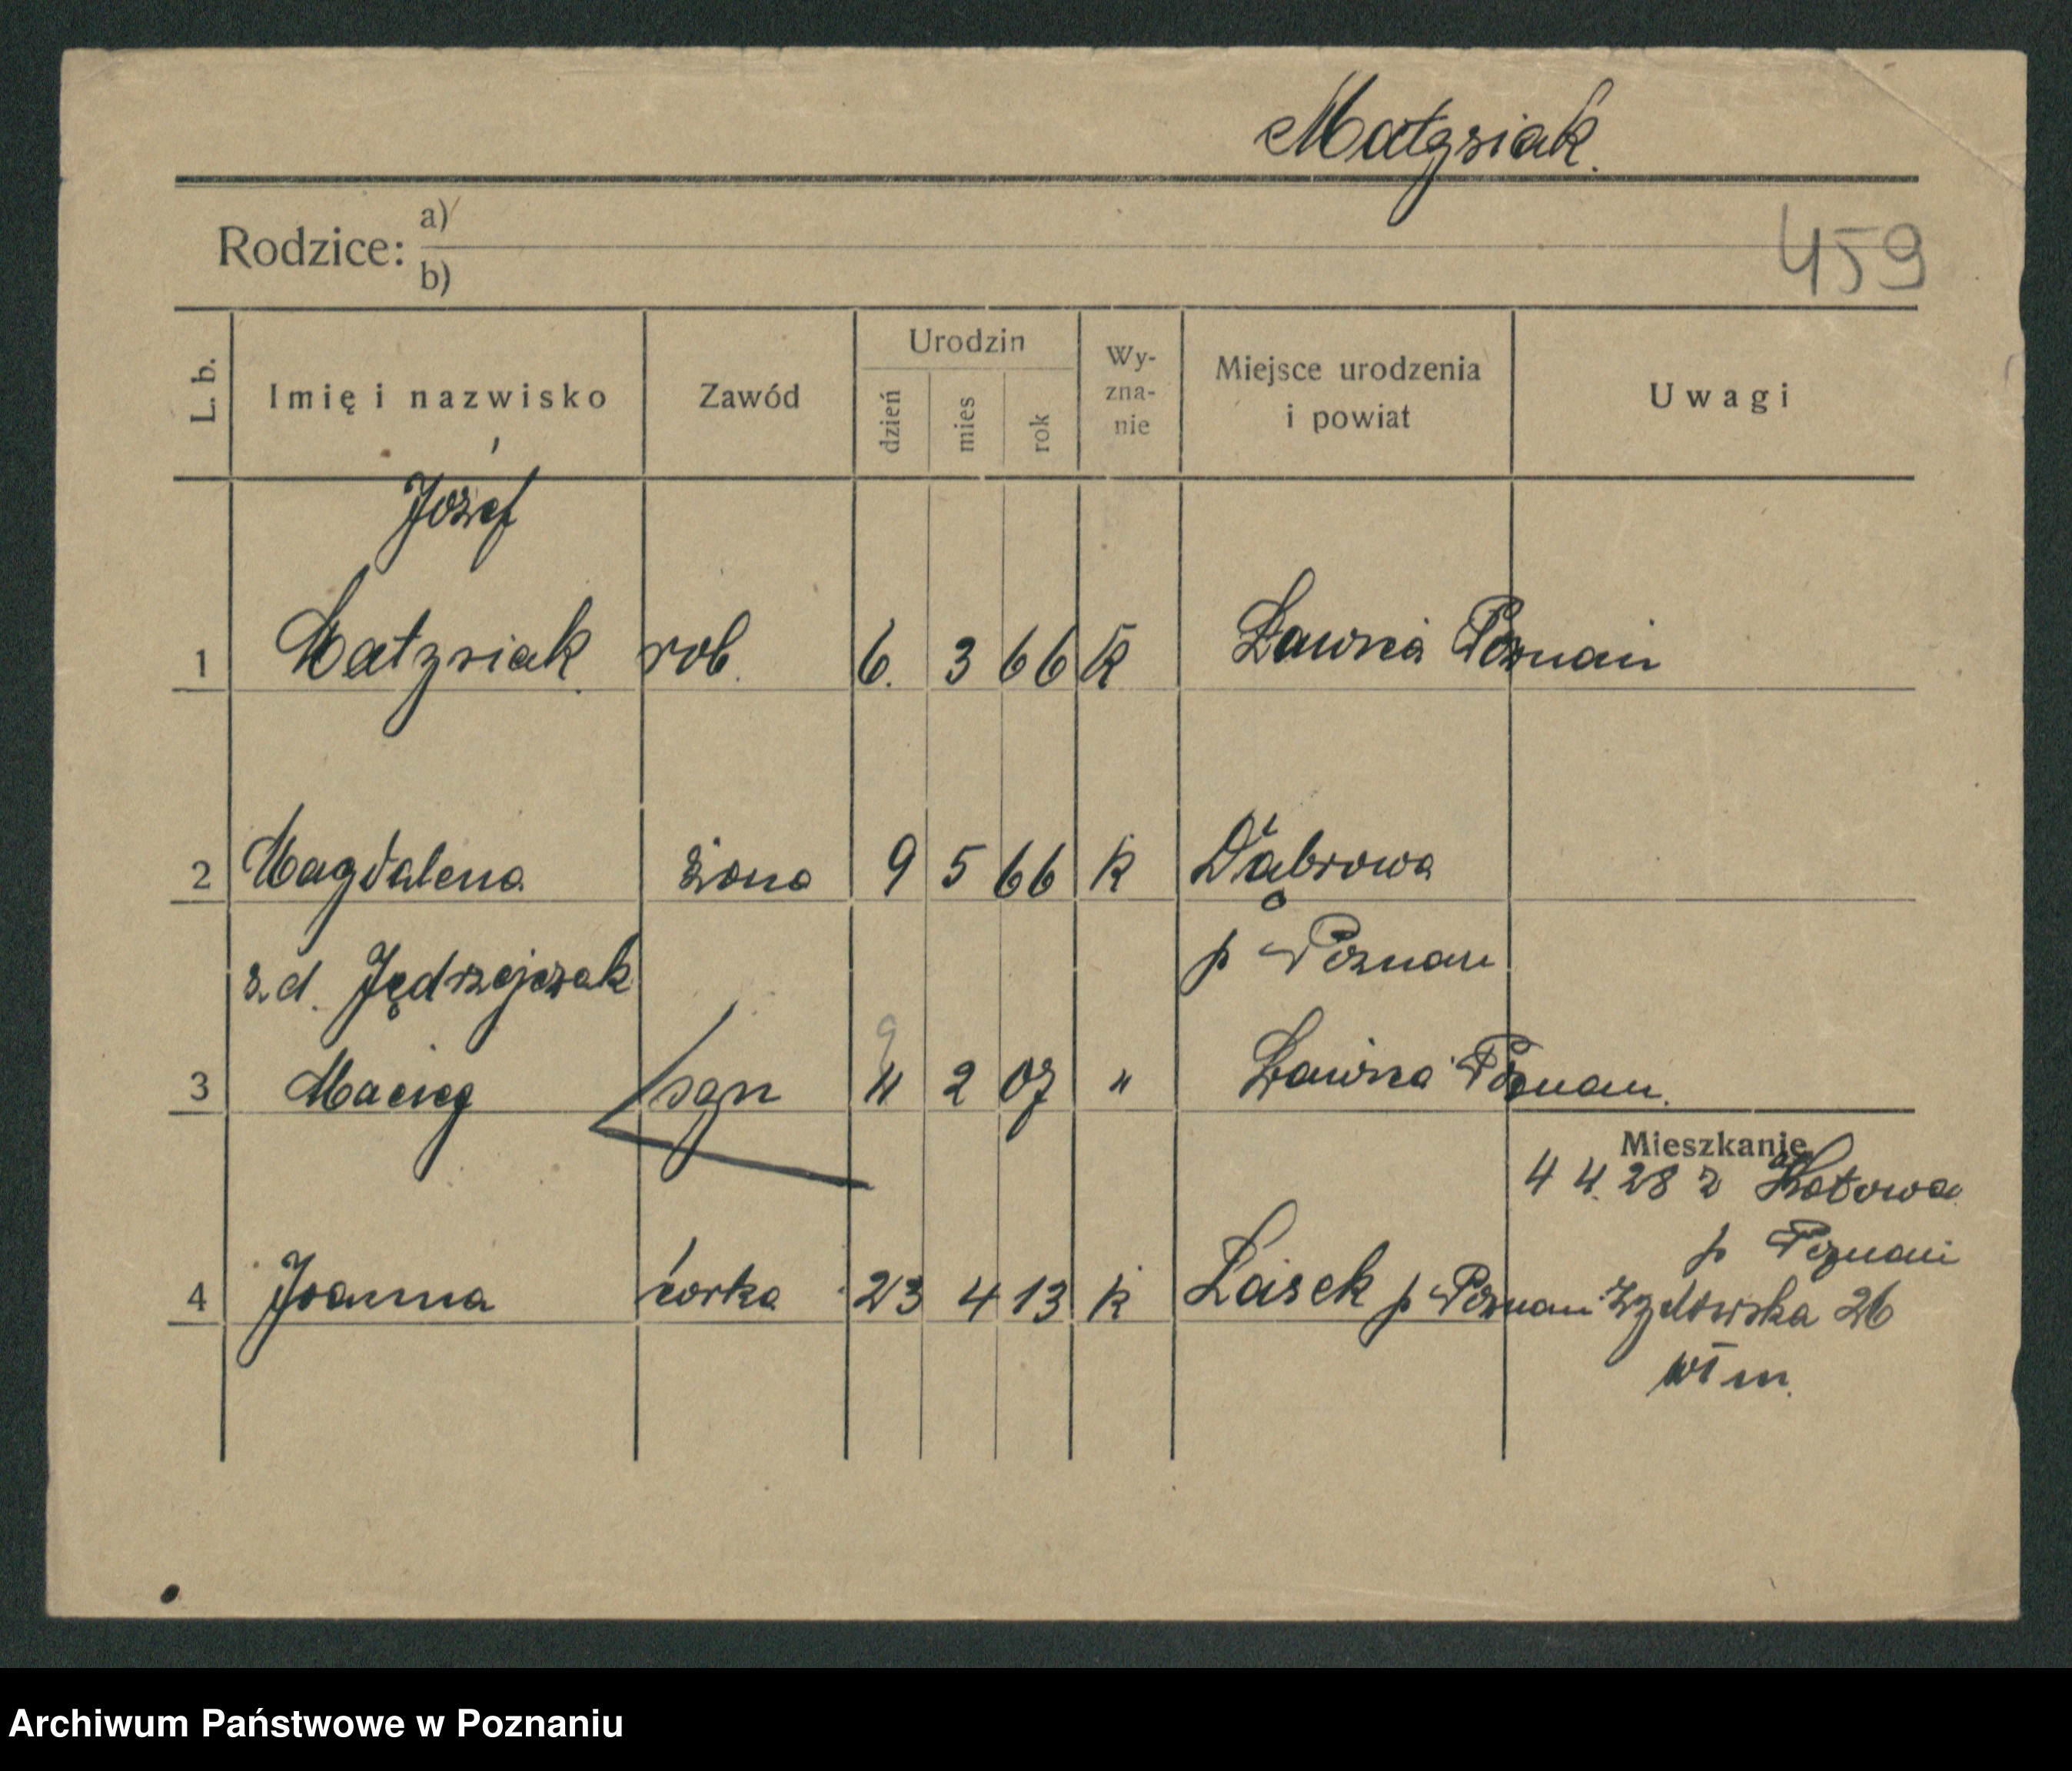 Małysiak.
Rodzice: a)
b)
459
L. b.
Imię i nazwisko
Zawód
Urodzin
dzień
mies
rok
Wy-
zna-
nie
Miejsce urodzenia
i powiat
Uwagi
Józef
1 Małysiak rob. 6. 3 66 k Ławica Poznań
2 Magdalena żona 9 5 66 k Dąbrowa
z d. Jędrzejczak p Poznań
9
3 Macieg syn " 2 07 " Ławica Poznań.
Mieszkanie
4 4. 28 z Kotowa
p Poznań
4 Joanna córka 23 4 13 k Lasek p Poznań Żydowska 26
wł m.
Archiwum Państwowe w Poznaniu